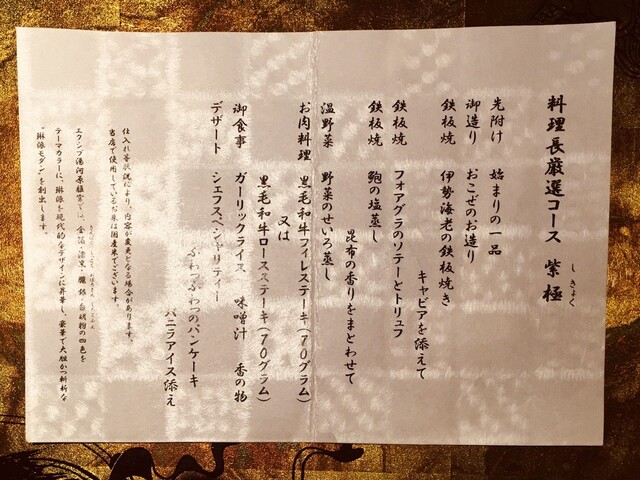 料理長厳選コース 紫極
しきょく
先附け 始まりの一品
御造り おこぜのお造り
鉄板焼 伊勢海老の鉄板焼き
キャビアを添えて
鉄板焼 フォアグラのソテーとトリュフ
鉄板焼 鮑の塩蒸し
昆布の香りをまとわせて
温野菜 野菜のせいろ蒸し
お肉料理 黒毛和牛フィレステーキ(70グラム)
又は
黒毛和牛ロースステーキ(70グラム)
御食事 ガーリックライス 味噌汁 香の物
デザート シェフスペシャリティー
ふわっふわっのパンケーキ
バニラアイス添え
仕入れ等状況により、内容が変更となる場合があります。
当店で使用しているお米は国産米でございます。
エクシブ湯河原離宮では、金箔・漆黒・朧銀・白の四色を
テーマカラーに、琳派を現代的なデザインに昇華し、豪華で大胆かつ斬新な
"琳派モダン"を創出します。